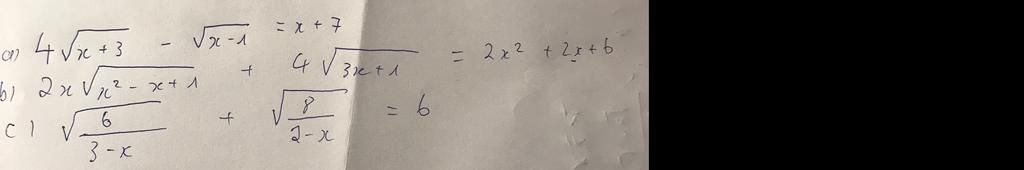 a) 4√(x+3) - √(x-1) = x+7
b) 2x√(x² - x + 1) + 4√(3x+1) = 2x² + 2x + 6
c) √(6/(3-x)) + √(8/(2-x)) = 6